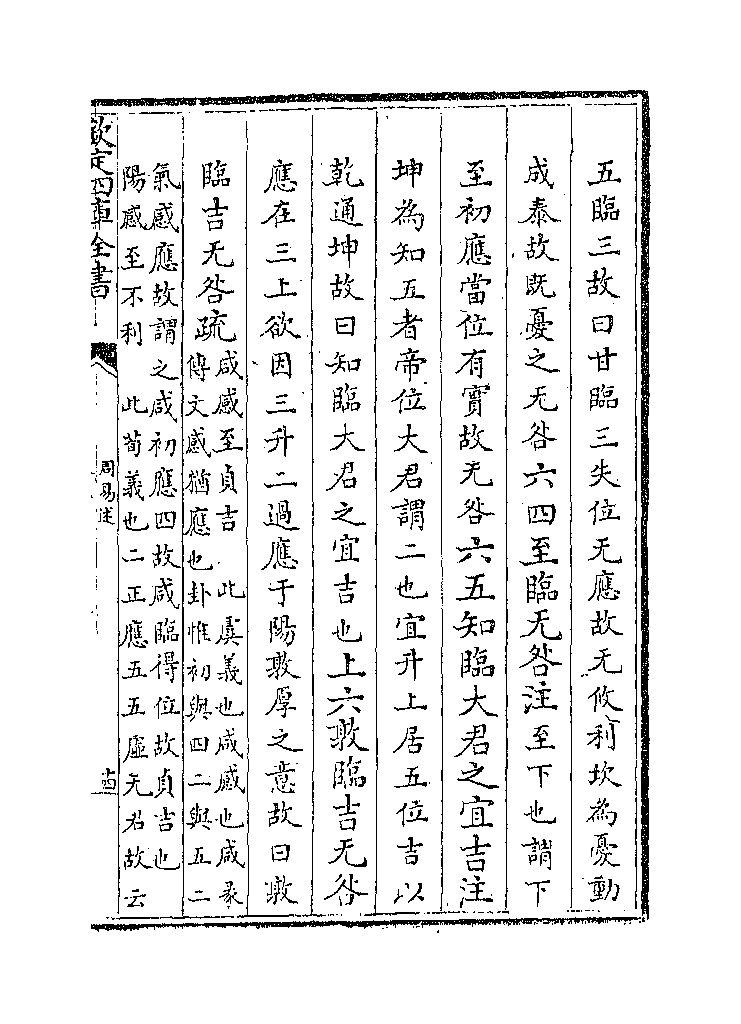 五臨三故曰甘臨三失位无應故无攸利坎為憂動
成泰故既憂之无咎六四至臨无咎注至下也謂下
至初應當位有實故无咎六五知臨大君之宜吉注
坤為知五者帝位大君謂二也宜升上居五位吉以
乾通坤故曰知臨大君之宜吉也上六敦臨吉无咎
應在三上欲因三升二過應于陽敦厚之意故曰敦
臨吉无咎疏
咸感至貞吉 此虞義也咸感也咸彖
傳文感猶應也卦惟初與四二與五二
氣感應故謂之咸初應四故咸臨得位故貞吉也
陽感至不利 此荀義也二正應五五虛无君故云
欽定四庫全書
周易述
十四